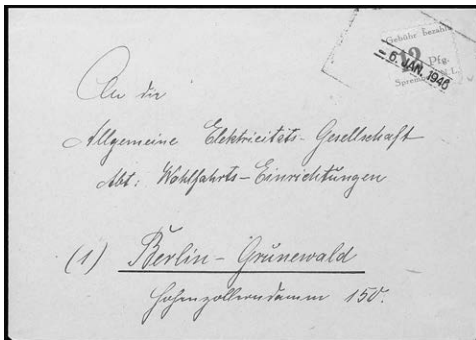 Gebühr bezahlt
12 Pfg.
- 6. JAN. 1946
An die
Allgemeine Elektricitäts-Gesellschaft
Abt: Wohlfahrts-Einrichtungen
(1) Berlin-Grünewald
Hohenzollerndamm 150.